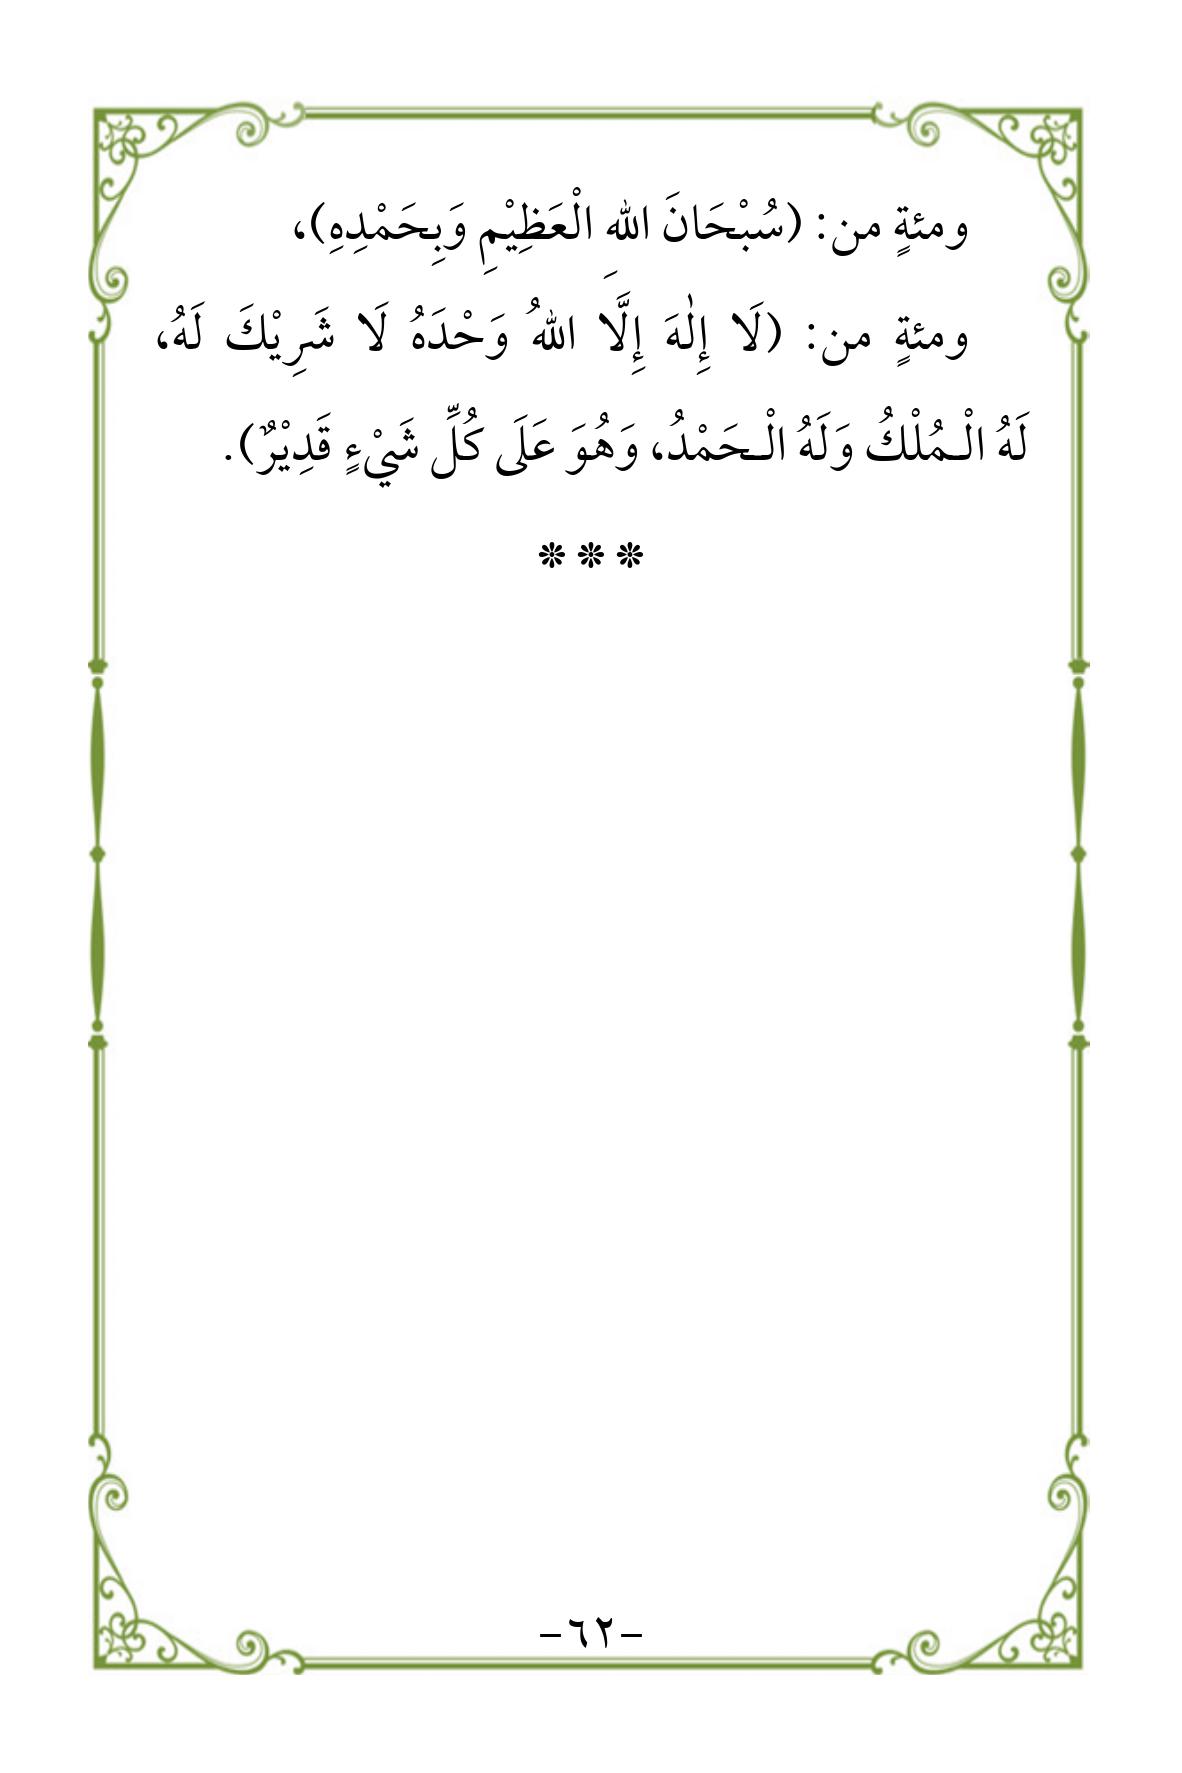 ومئةٍ من: (سُبْحَانَ اللهِ الْعَظِيْمِ وَبِحَمْدِهِ)،
ومئةٍ من: (لَا إِلٰهَ إِلَّا اللهُ وَحْدَهُ لَا شَرِيْكَ لَهُ،
لَهُ الْـمُلْكُ وَلَهُ الْـحَمْدُ، وَهُوَ عَلَى كُلِّ شَيْءٍ قَدِيْرٌ).
❊ ❊ ❊
-٦٢-